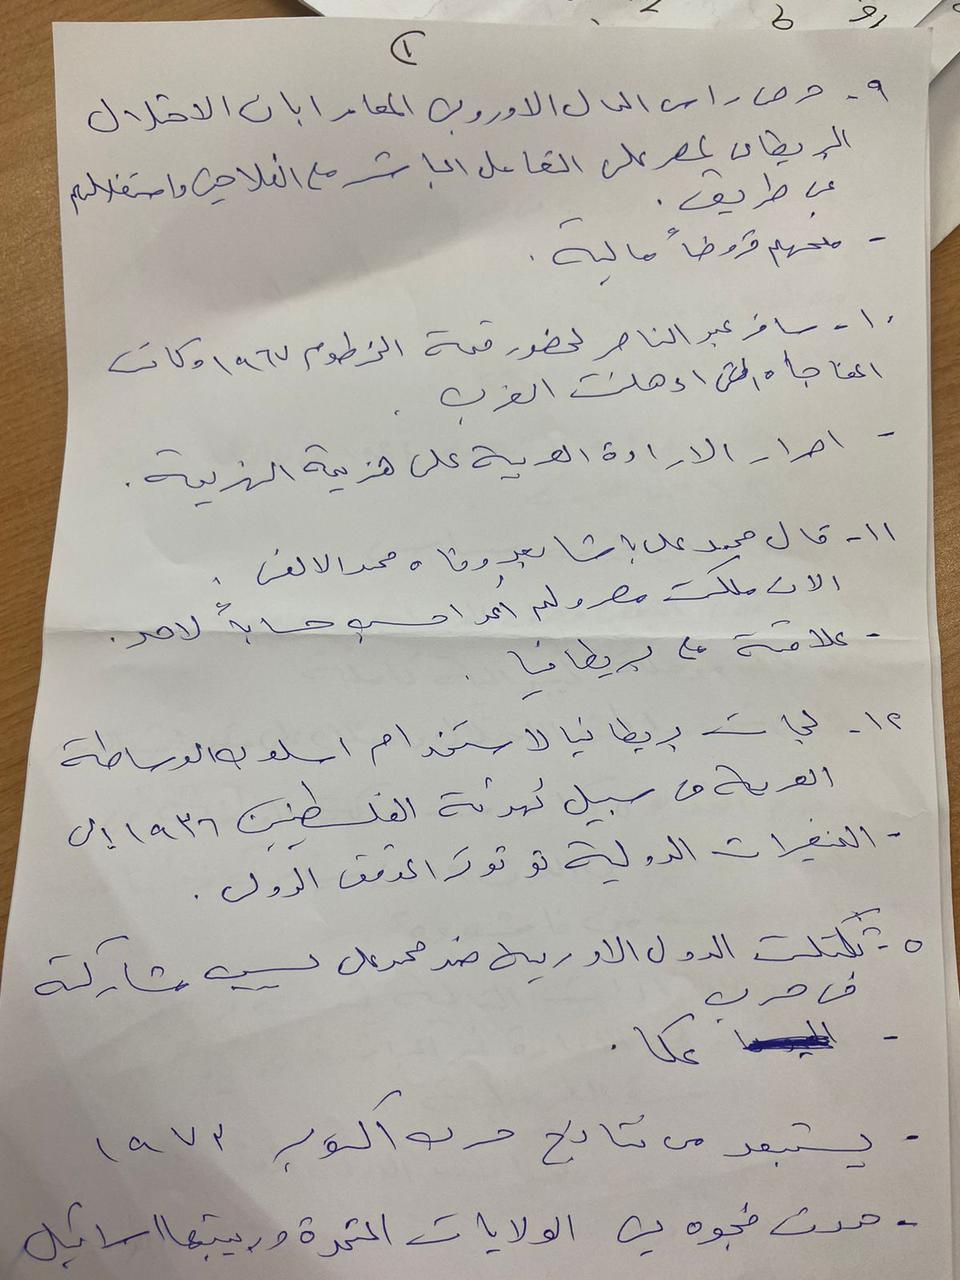 ١
٩- حرص راس المال الاوروبى المعاصر ابان الاحتلال
البريطانى لمصر على التعامل المباشر مع الفلاحين واستغلالهم
عن طريق .
- منحهم قروضاً مالية .
١٠- سافر عبد الناصر لحضور قمة الخرطوم ١٩٦٧ وكانت
المفاجاه التى اذهلت الغرب .
- اصرار الارادة العربية على هزيمة الهزيمة .
١١- قال محمد على باشا بعد وفاه محمد الالفى .
الان ملكت مصر ولم أعد احسب حسابةً لاحد .
- علاقتة مع بريطانيا .
١٢- لجات بريطانيا لاستخدام اسلوب الوساطة
العربية فى سبيل تهدئة الفلسطينين ١٩٣٦ إلى
- المتغيرات الدولية توتر الموقف الدولى .
٥- تكتلت الدول الاوربية ضد محمد على بسبب مشاركة
فى حرب
- عكا .
- يستبعد من نتائج حرب أكتوبر ١٩٧٣
- حدث فجوه بين الولايات المتحدة وربيبتها اسرائيل